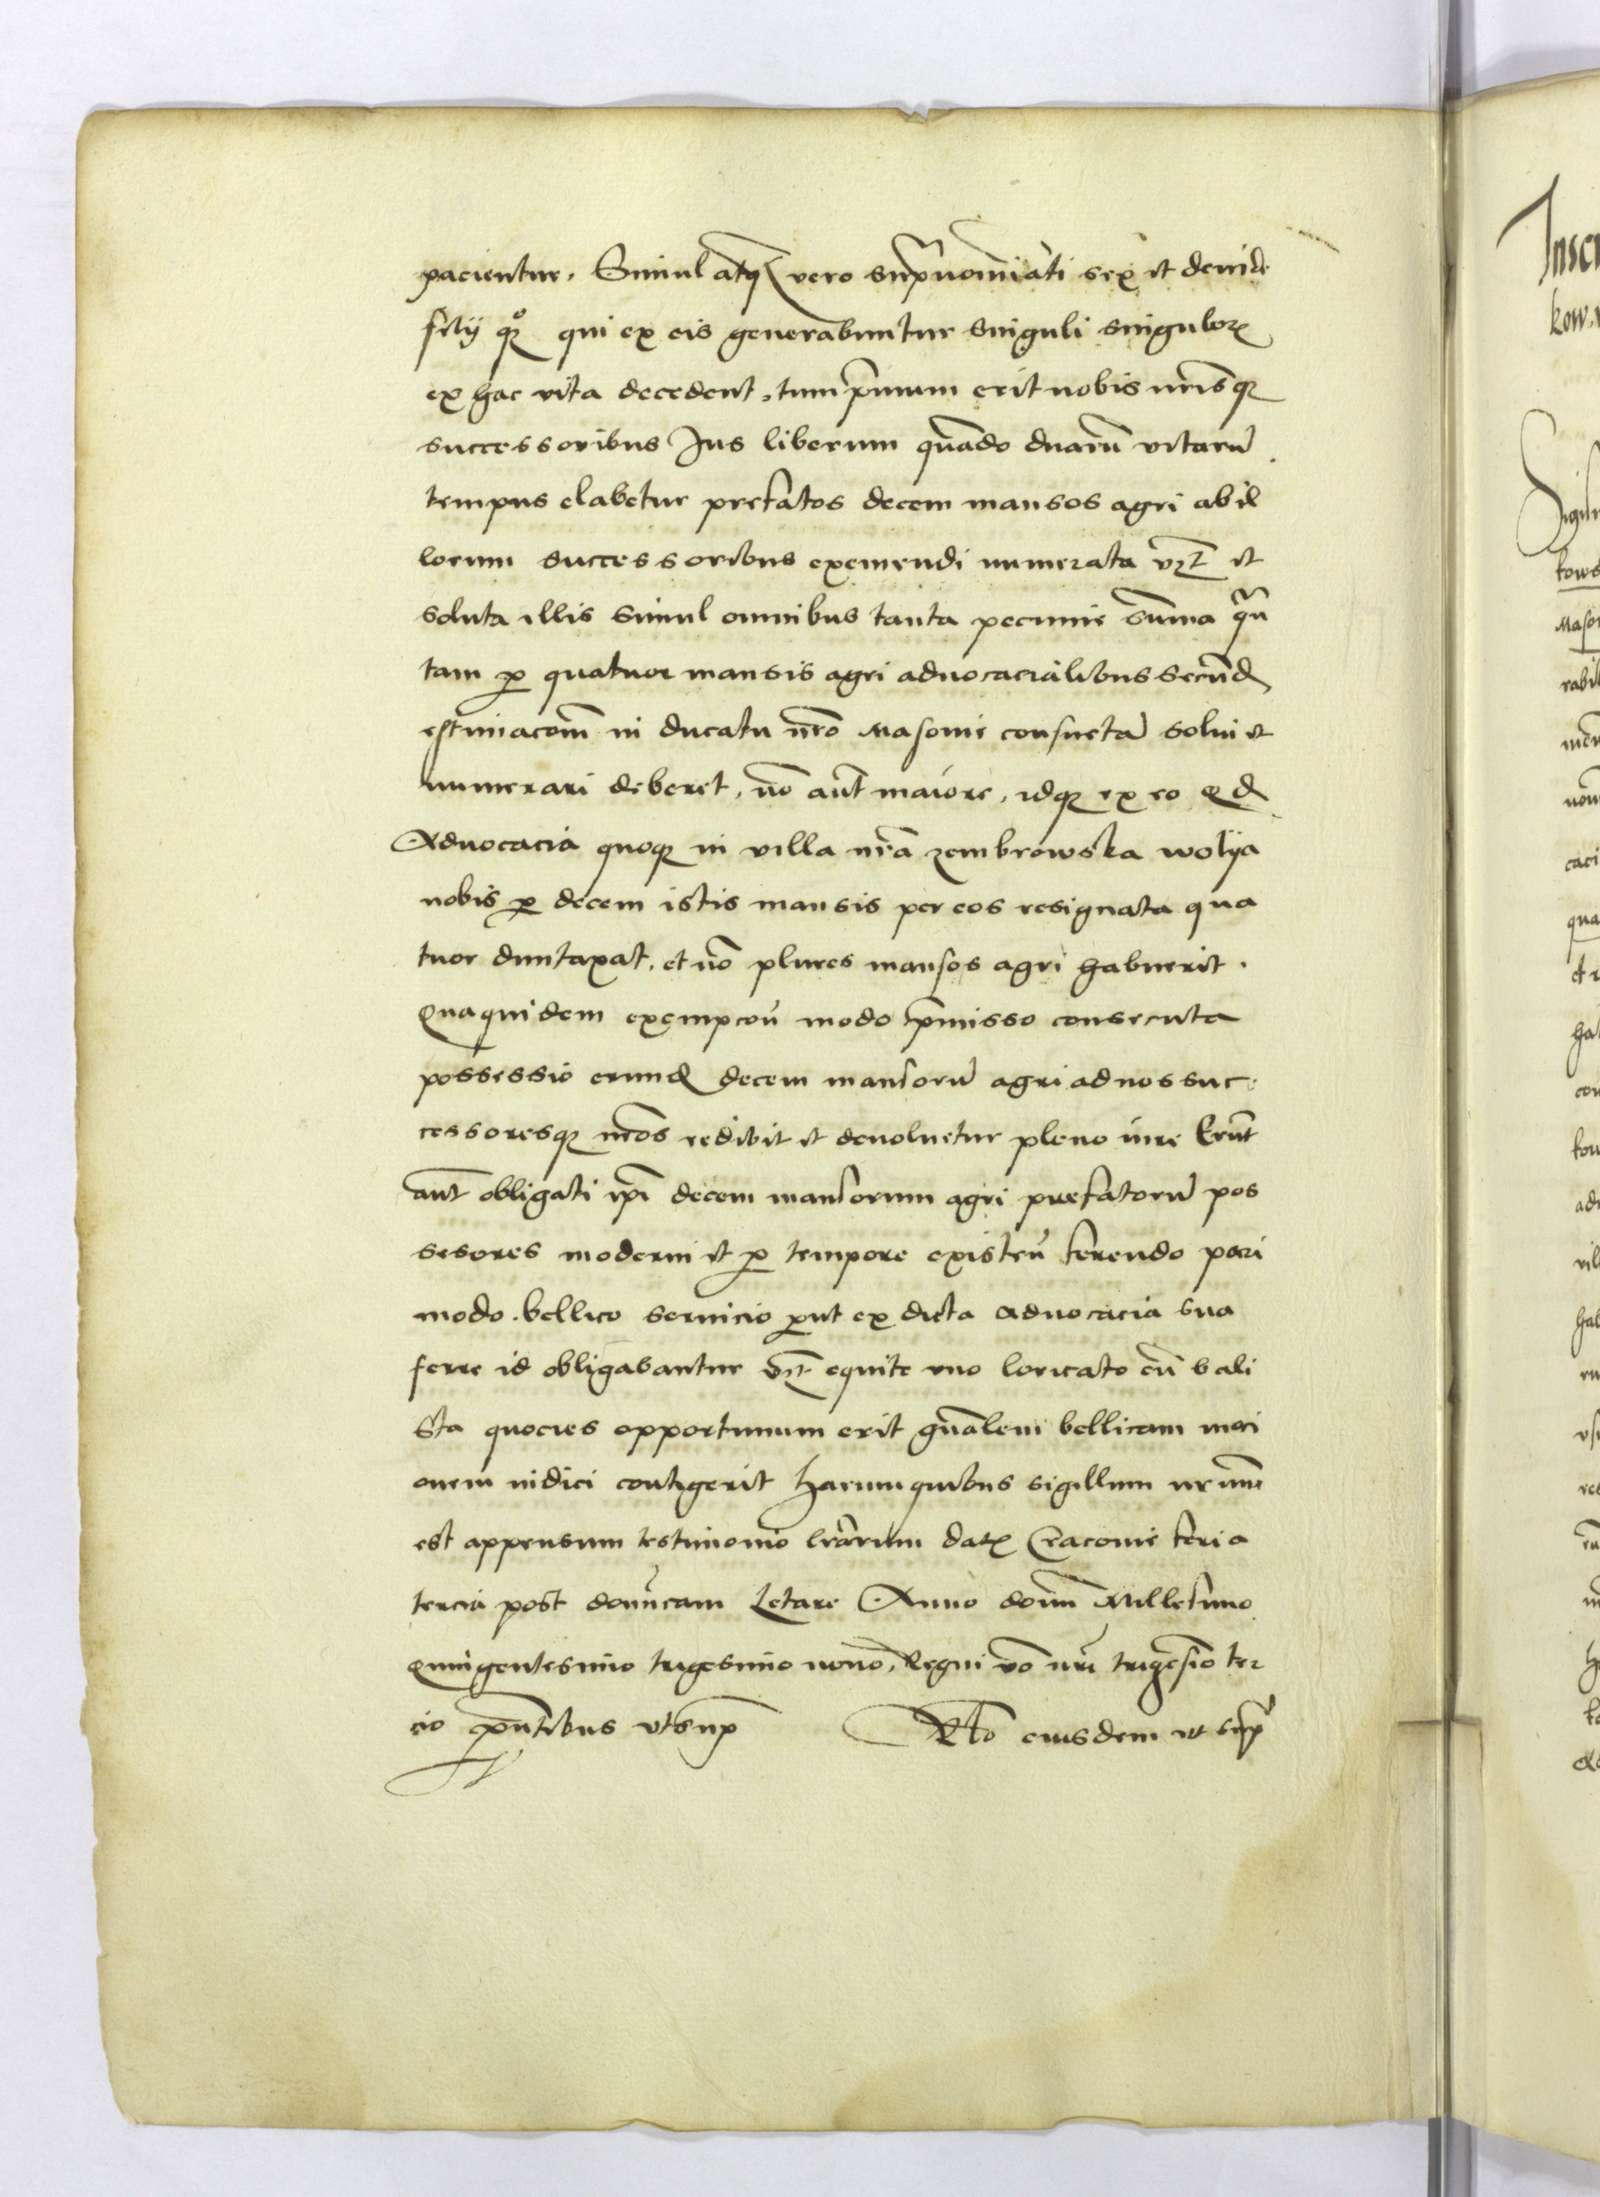 pacientur. Simul atq vero supranominati sex et deinde
filij qq qui ex eis generabuntur singuli singulor
ex hac vita decedent, tum primum erit nobis nrisque
successoribus Jus liberum quando duaru vitaru
tempus elabetur prefatos decem mansos agri ab il
lorum successoribus exemendi numerata vz et
soluta illis simul omnibus tanta pecunie suma qua
tam p quatuor mansis agri advocacialibus secund
estimacom in ducatu nro Masovie consueta solui et
numerari deberet, no aut maiore, idque ex eo qd
Advocacia quoque in villa nra zembrowska wolya
nobis p decem istis mansis per eos resignata qua
tuor duntaxat, et no plures mansos agri habuerit.
Quaquidem exempcon modo pmisso consecuta
possessio eorund decem mansoru agri ad nos suc
cessoresque nros redibit et devoluetur pleno iure Erut
aut obligati ipi decem mansorum agri prefatoru pos
sesores moderni et p tempore existen ferendo pari
modo bellico servicio put ex dicta advocacia sua
ferre id obligabantur vz equite uno loricato cu bali
sta quocies opportunum erit gnalem bellicam moci
onem indici contigerit Harum quibus sigillum nrum
est appensum testimonio lrarum dat Cracovie feria
tercia post dominicam Letare Anno domini Millesimo
quingentesimo trigesimo nono, Regni vo nri trigesimo ter
cio pntibus ut sup Rlo eiusdem ut supra
Inscr
kow